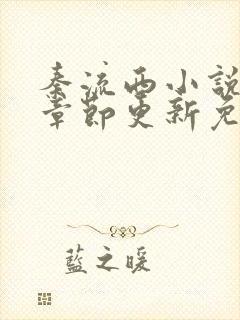 秦流西小說
章節更新免
藍之暖